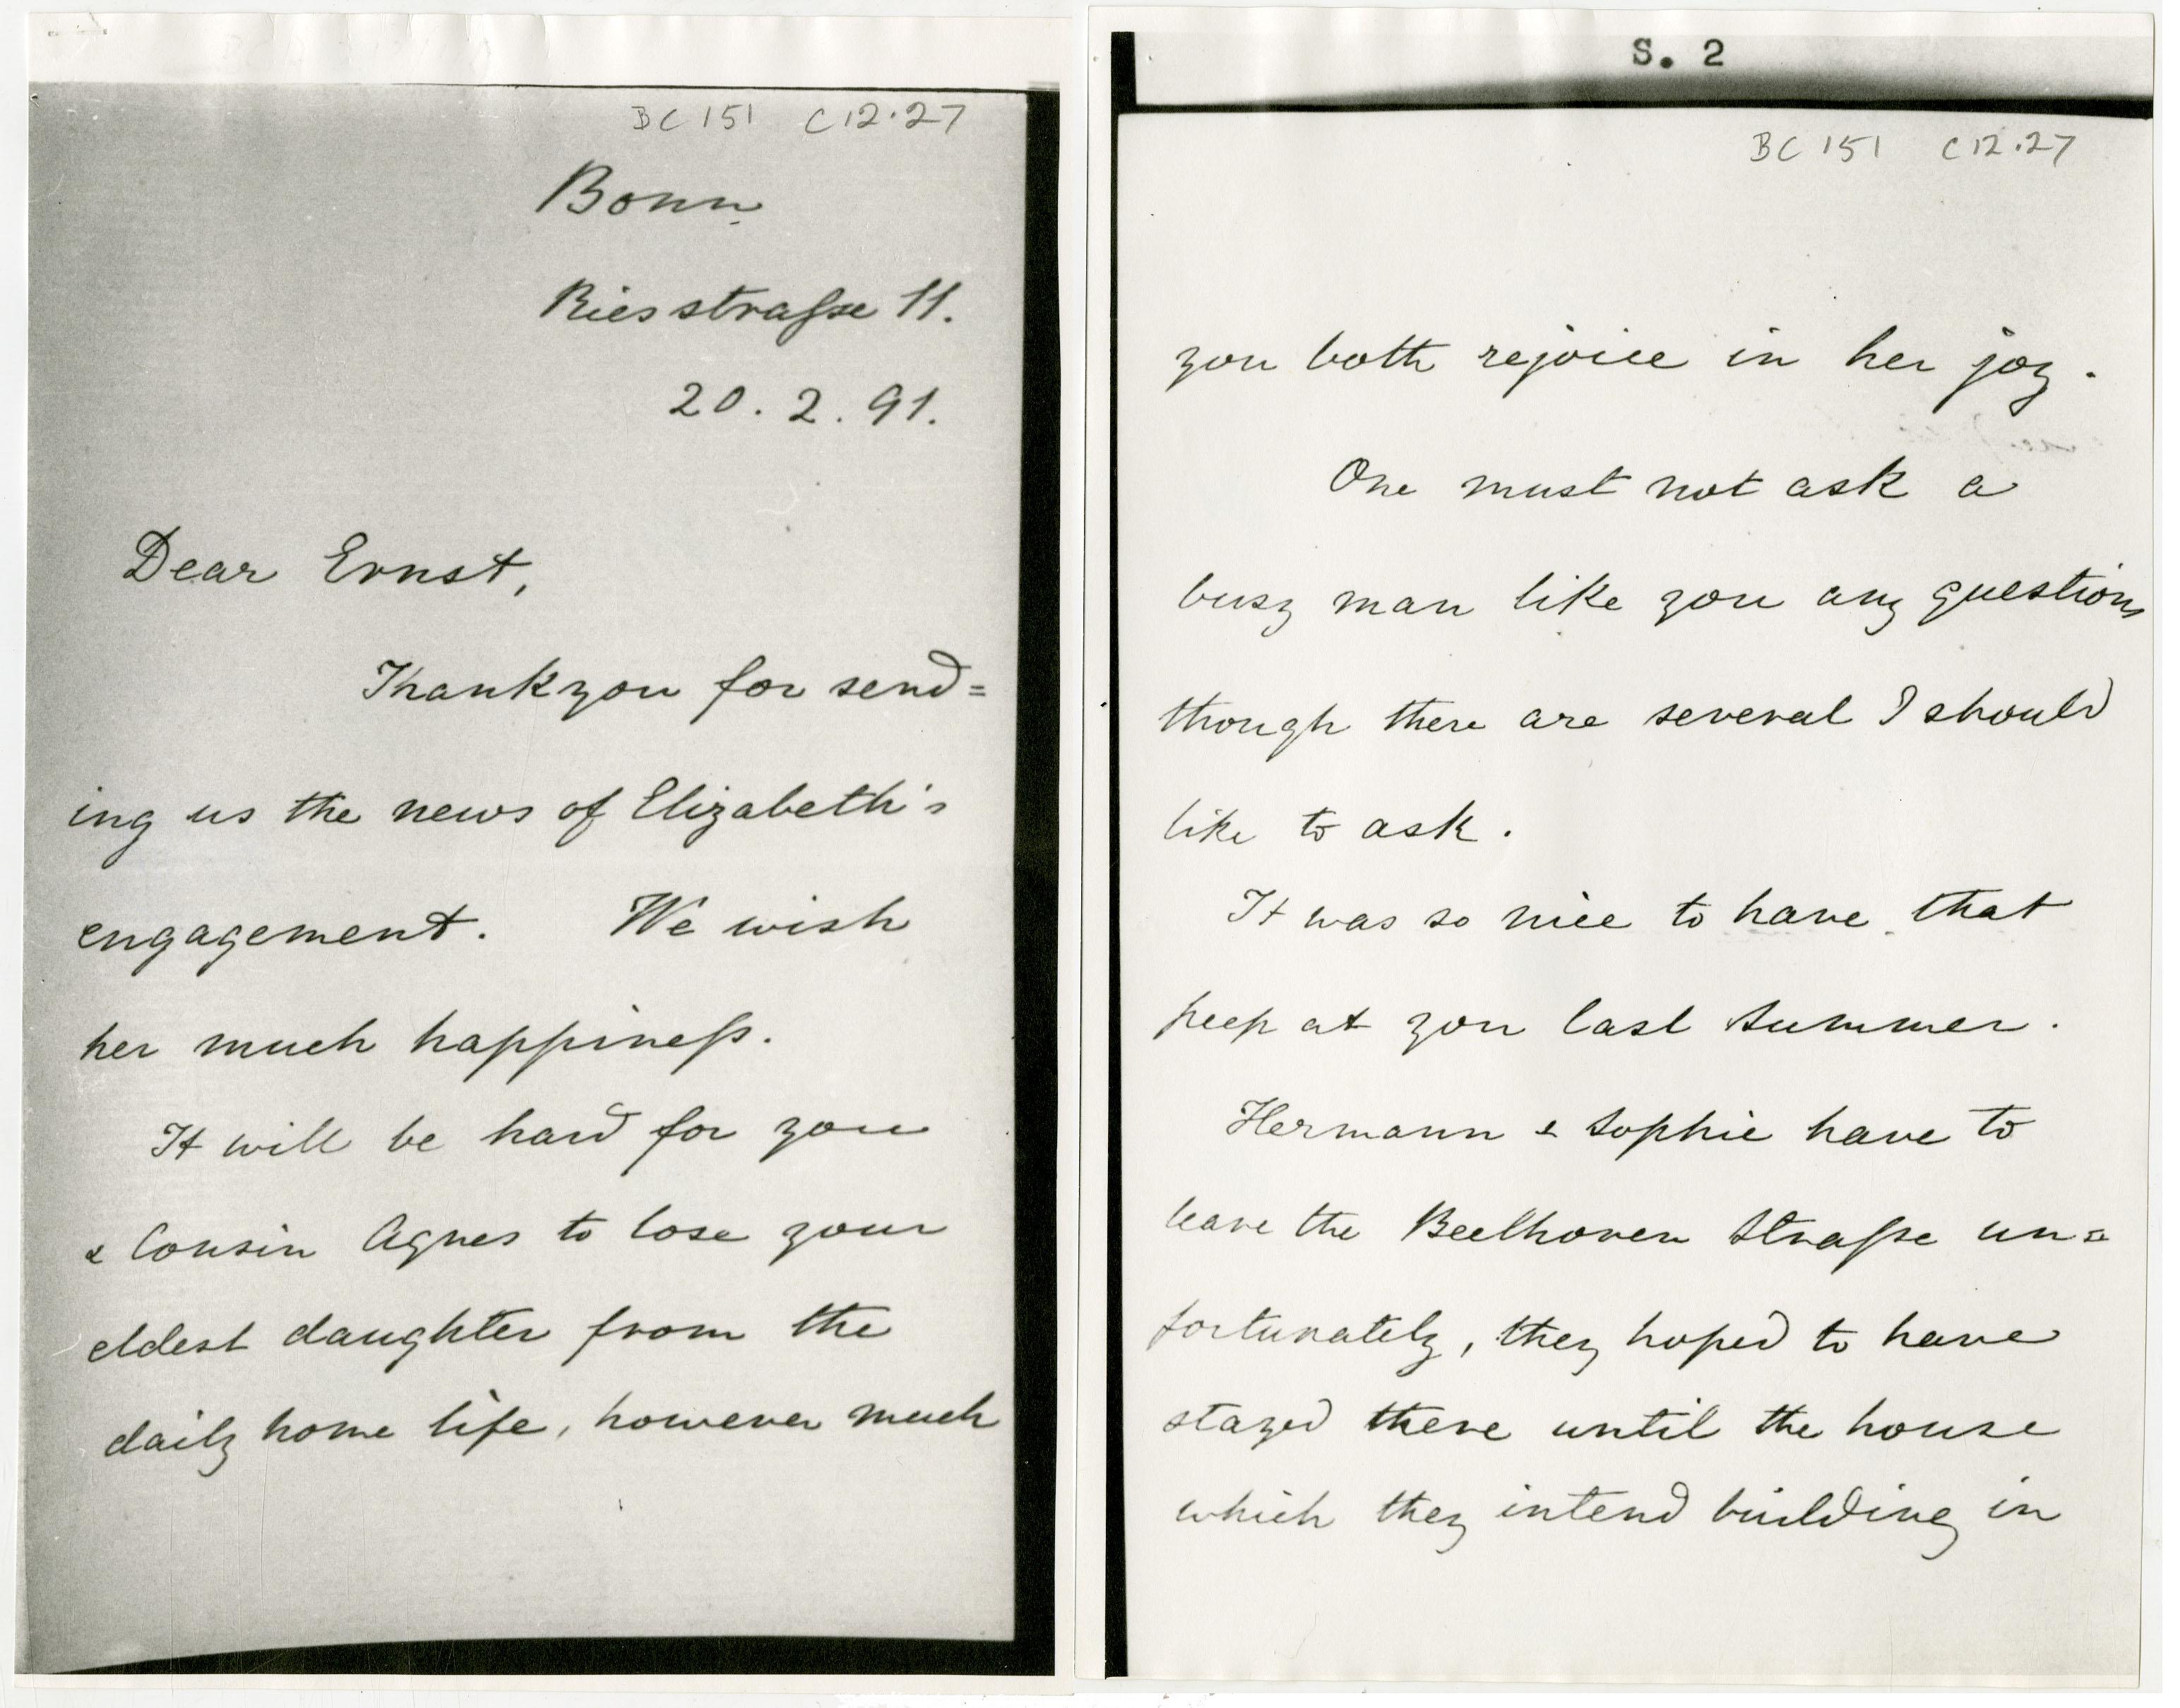 BC 151 C12.27
Bonn
Riesstraße 11.
20. 2. 91.
Dear Ernst,
Thank you for send=
ing us the news of Elizabeth's
engagement. We wish
her much happineſs.
It will be hard for you
& Cousin Agnes to lose your
eldest daughter from the
daily home life, however much
S. 2
BC 151 C12.27
you both rejoice in her joy.
One must not ask a
busy man like you any questions
though there are several I should
like to ask.
It was so nice to have that
peep at you last summer.
Hermann & Sophie have to
leave the Beethoven Straße un=
fortunately, they hoped to have
stayed there until the house
which they intend building in